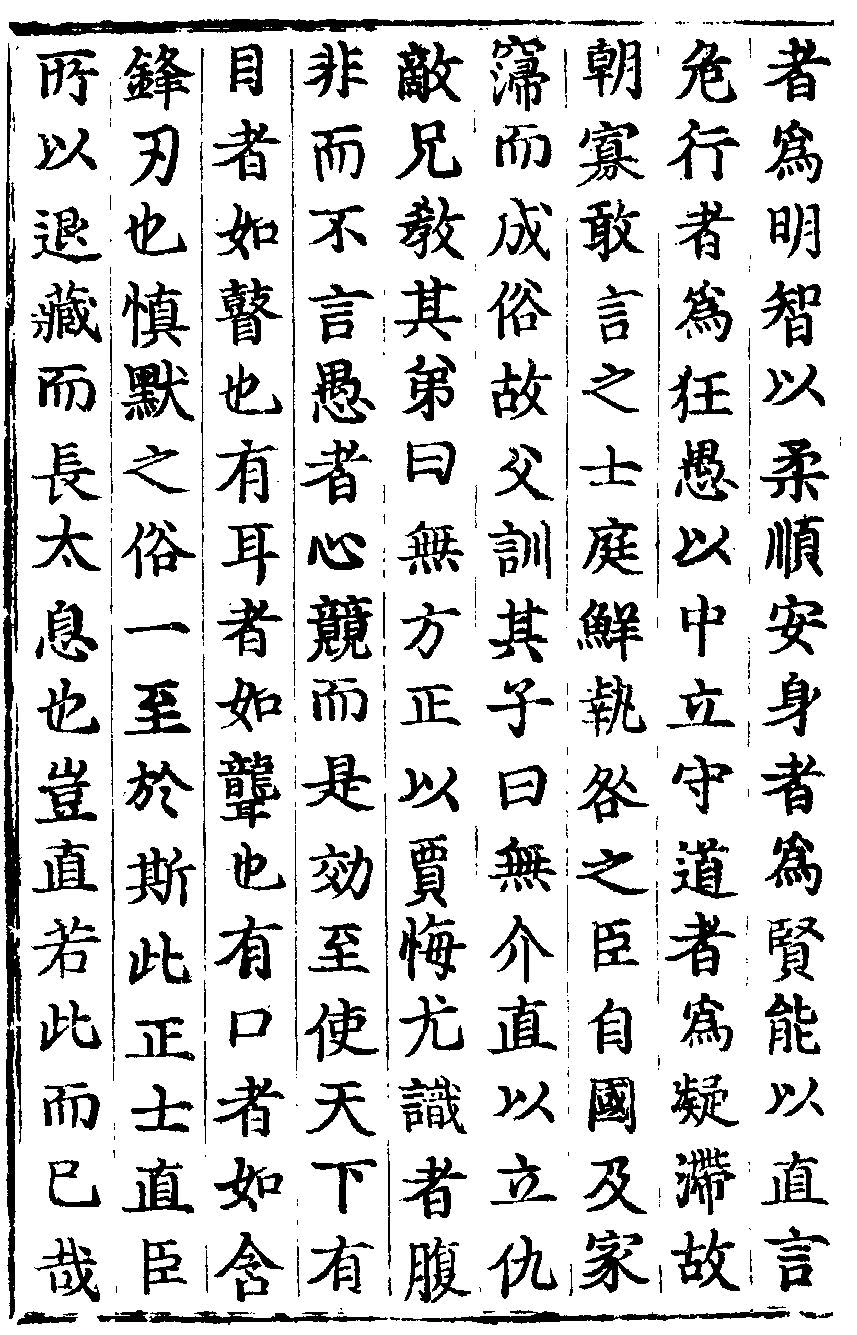 者爲明智以柔順安身者爲賢能以直言
危行者爲狂愚以中立守道者爲凝滯故
朝寡敢言之士庭鮮執咎之臣自國及家
寖而成俗故父訓其子曰無介直以立仇
敵兄教其弟曰無方正以賈悔尤識者腹
非而不言愚者心競而是効至使天下有
目者如瞽也有耳者如聾也有口者如含
鋒刃也慎默之俗一至於斯此正士直臣
所以退藏而長太息也豈直若此而已哉